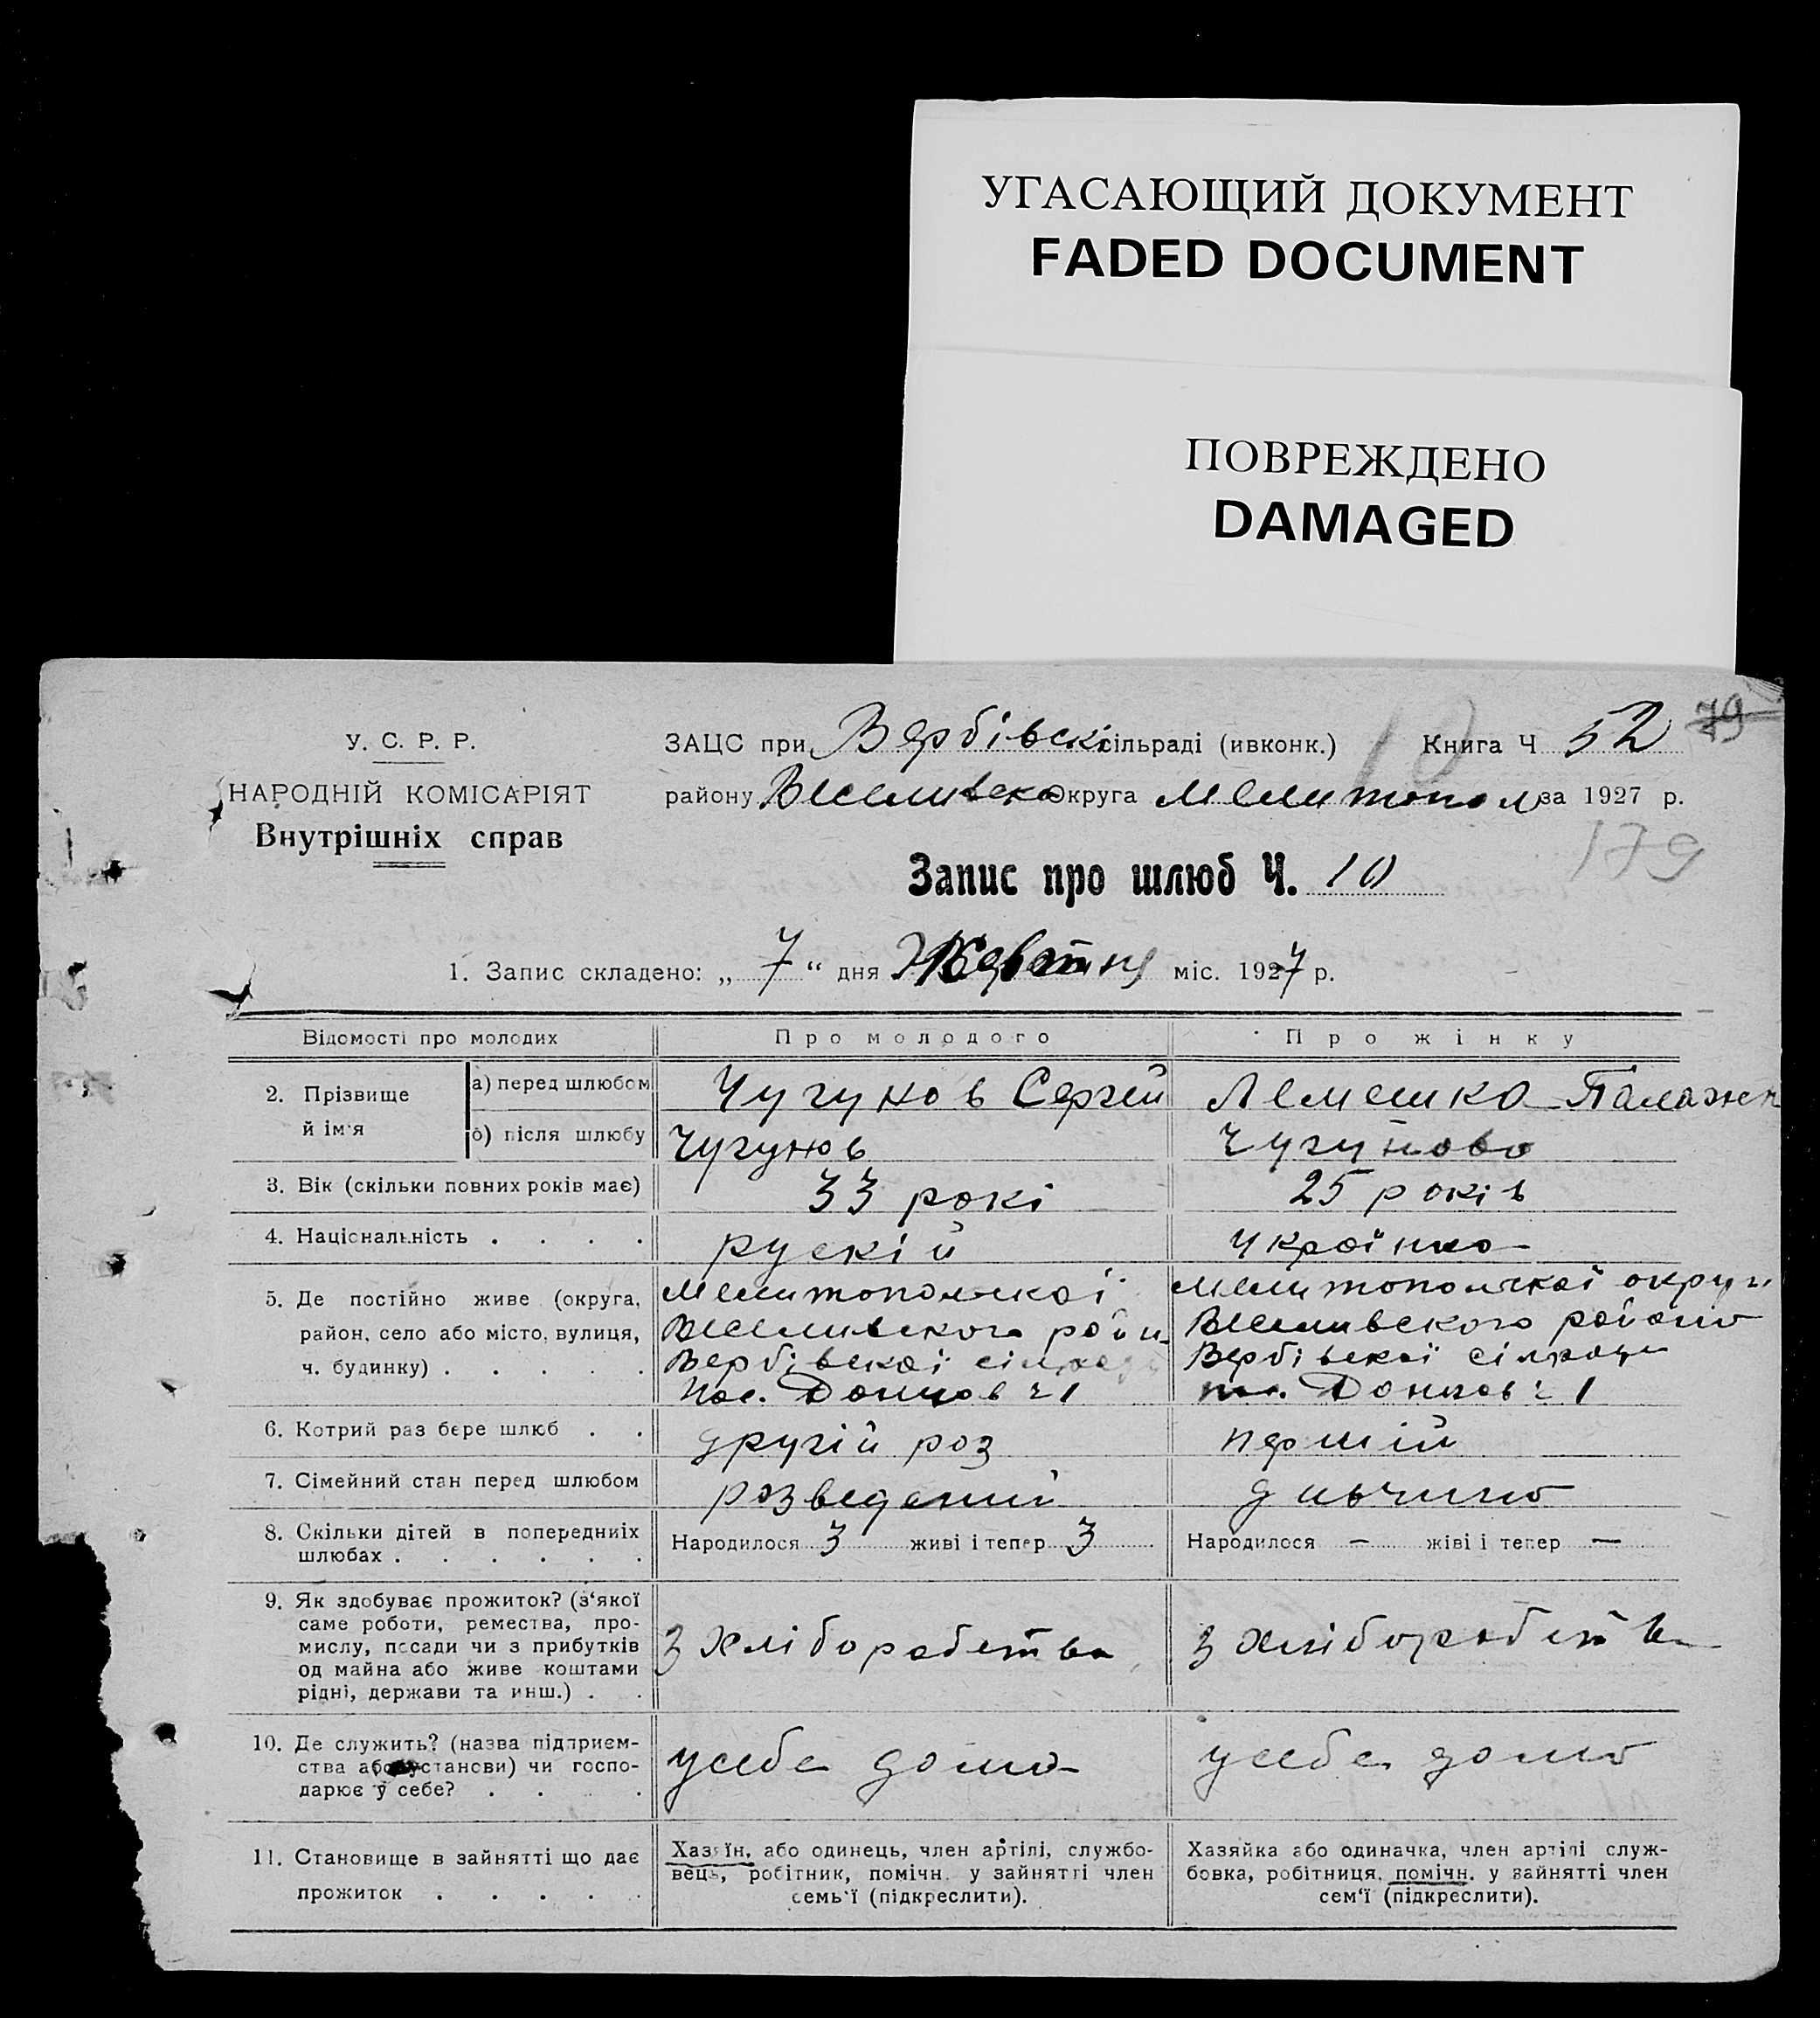 УГАСАЮЩИЙ ДОКУМЕНТ
FADED DOCUMENT
ПОВРЕЖДЕНО
DAMAGED
У. С. Р. Р.
НАРОДНІЙ КОМІСАРІЯТ
Внутрішніх справ
ЗАЦС при Вербівскі сільраді (ивконк.) Книга Ч 52 79
району Веселивско Округа Мелитопол за 1927 р.
10
179
Запис про шлюб Ч. 10
1. Запис складено: „ 7 “ дня Жовтня міс. 1927 р.
Відомості про молодих Про молодого Про жінку
2. Прізвище й ім'я
а) перед шлюбом Чугунов Сергей Лемешко Палажк
б) після шлюбу Чугунов Чугунова
3. Вік (скільки повних років має) 33 рокі 25 років
4. Національність . . . . рускій українка
5. Де постійно живе (округа, район, село або місто, вулиця, ч. будинку) . . . . .
Мелитополскої
Веселивского райн
Вербівскої сілради
пос. Донцов ч 1
Мелитополскої округи
Веселивского района
Вербівскої сілради
Донцов ч 1
6. Котрий раз бере шлюб . . другій раз першій
7. Сімейний стан перед шлюбом розведений дивчина
8. Скільки дітей в попередниіх шлюбах . . . . . .
Народилося 3 живі і тепер 3 Народилося — жіві і тепер —
9. Як здобуває прожиток? (з'якої
саме роботи, ремества, про-
мислу, посади чи з прибутків
од майна або живе коштами
рідні, держави та инш.) . .
З хліборобства З хліборобства
10. Де служить? (назва підприєм-
ства або установи) чи госпо-
дарює у себе? . . . .
усебе дома усебе дома
11. Становище в зайнятті що дає
прожиток . . . . .
Хазяїн, або одинець, член артілі, службо-
вець, робітник, помічн. у зайнятті член
семь'ї (підкреслити).
Хазяйка або одиначка, член артілі служ-
бовка, робітниця, помічн. у зайнятті член
сем'ї (підкреслити).